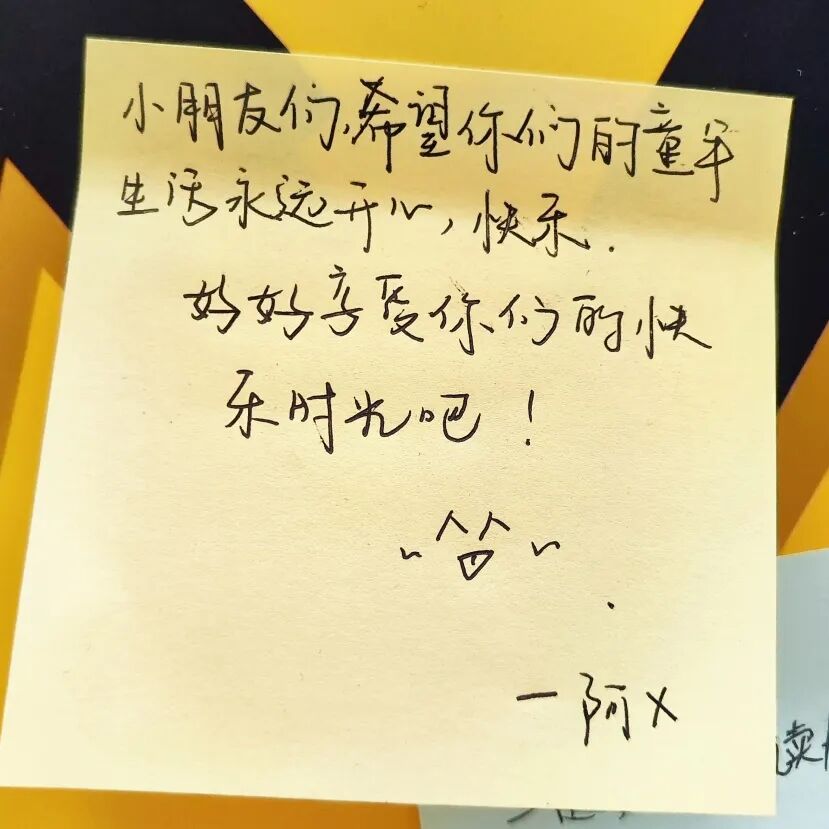 小朋友们,希望你们的童年
生活永远开心,快乐.
好好享受你们的快
乐时光吧!
一阿X
读